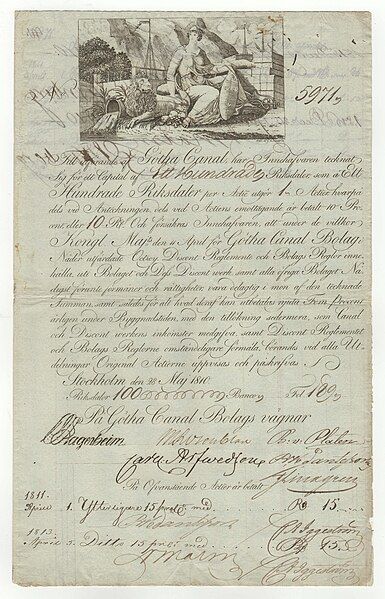 5971
Till utförande af Götha Canal, har Innehafvaren tecknat
Sig för ett Capital af Ett Hundrade Riksdaler som à Ett
Hundrade Riksdaler per Actie utgör 1 Actier, hvarpå
dels vid Anteckningen dels vid Actiens emottagande är betalt 10 Pro
cent, eller 10 Rd. Och försäkras Innehafvaren, att under de vilkor
Kongl. Maj:ts den 11 April för Götha Canal Bolag
Nåd. utfärdade Octroy, Discont Reglemente och Bolags Regler inne-
hålla, uti Bolaget och Dess Discont werk, samt alla öfrige Bolaget Nå-
digst förunte förmoner och rättigheter, vara delagtig i mon af den tecknade
Summan, samt såledis för all hvad deraf kan utbetalas njuta Fem Procent
årligen under Byggnadstiden, med den tillökning sedermera, som Canal
och Discont werkens inkomster medgifva, samt Discont Reglementet
och Bolags Reglerne omständeligare förmäla, börandes vid alla Ut-
delningar Original Actierne uppvisas och påskrifvas.
Stockholm den 28 Maj 1810.
Riksdaler 100 Banco Fol. 189
På Götha Canal Bolags vägnar
På Ofvanstående Actier är betalt
1811. April 1. Ytterligare 15 procent med Rd 15
1813. April 5. Ditto 15 prct med Rd 15